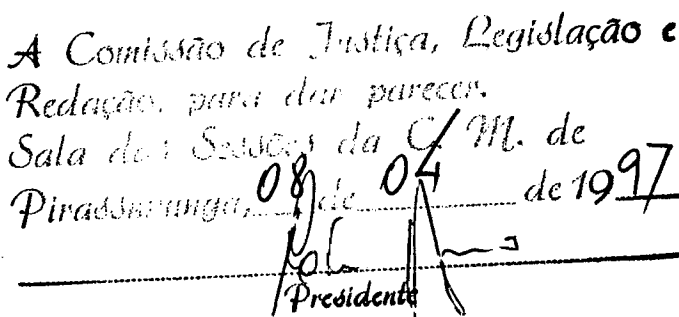 A Comissão de Justiça, Legislação e
Redação, para dar parecer.
Sala das Sessões da C. M. de
Pirassununga, 08 de 04 de 1997
Presidente